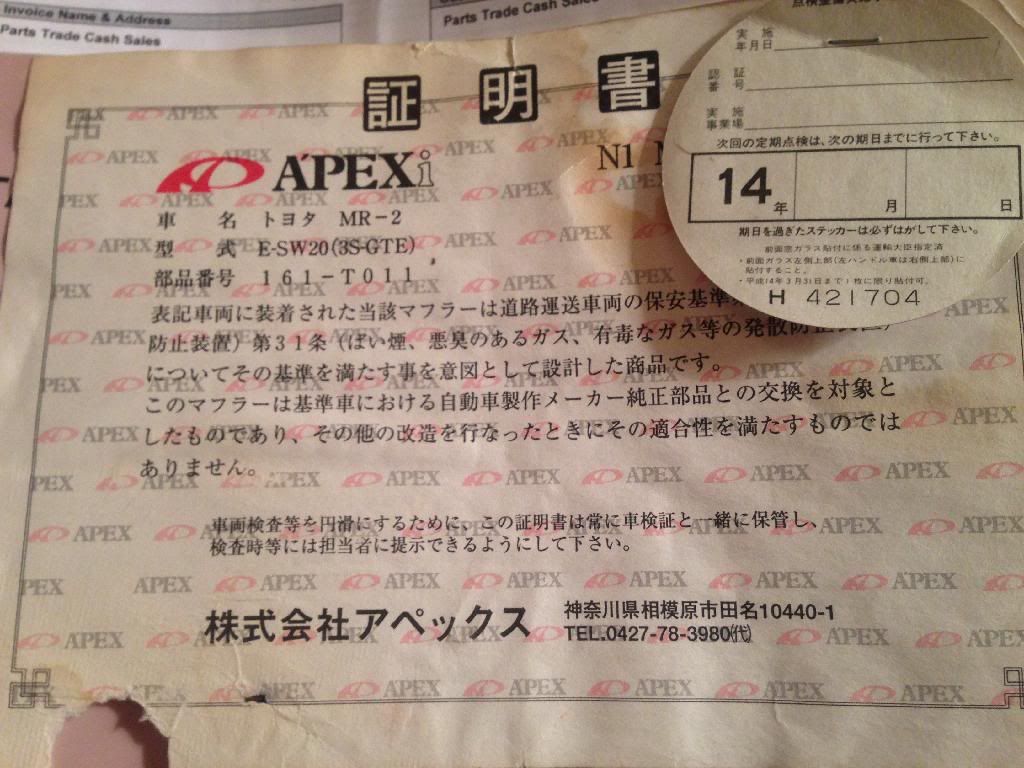 Invoice Name & Address
Parts Trade Cash Sales
Parts Trade Cash Sales
証明書
A'PEXi
N1
車名 トヨタ MR-2
型式 E-SW20(3S-GTE)
部品番号 161-T011
表記車両に装着された当該マフラーは道路運送車両の保安基準
防止装置)第31条(ばい煙、悪臭のあるガス、有毒なガス等の発散防止装置)
についてその基準を満たす事を意図として設計した商品です。
このマフラーは基準車における自動車製作メーカー純正部品との交換を対象と
したものであり、その他の改造を行なったときにその適合性を満たすものでは
ありません。
車両検査等を円滑にするために、この証明書は常に車検証と一緒に保管し、
検査時等には担当者に提示できるようにして下さい。
株式会社アペックス
神奈川県相模原市田名10440-1
TEL.0427-78-3980㈹
実施
年月日
認証
番号
実施
事業場
次回の定期点検は、次の期日までに行って下さい。
14年 月 日
期日を過ぎたステッカーは必ずはがして下さい。
前面窓ガラス貼付に係る運輸大臣指定済
・前面ガラス左側上部(左ハンドル車は右側上部)に
貼付すること。
・平成14年3月31日まで1枚に限り貼付可。
H 421704